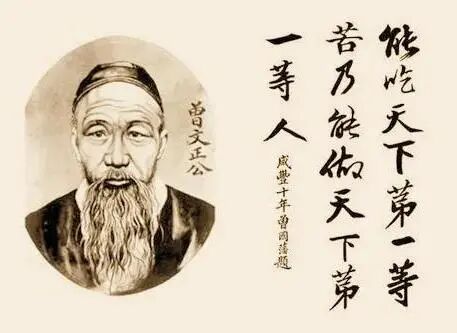 能吃天下苐一等
苦乃能做天下苐
一等人
咸豐十年曾國藩題
曾文正公